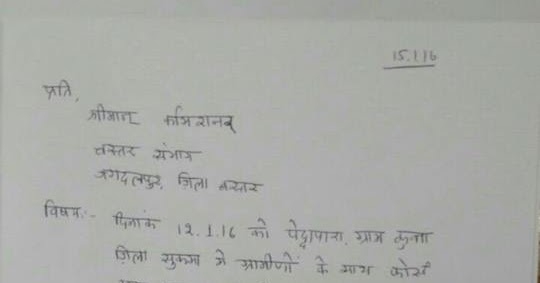 15.1.16
प्रति,
श्रीमान् कमिश्नर
बस्तर संभाग
जगदलपुर, जिला बस्तर
विषय:- दिनांक 12.1.16 को पेद्दापारा, ग्राम कुन्ना
जिला सुकमा में ग्रामीणों के साथ फोर्स